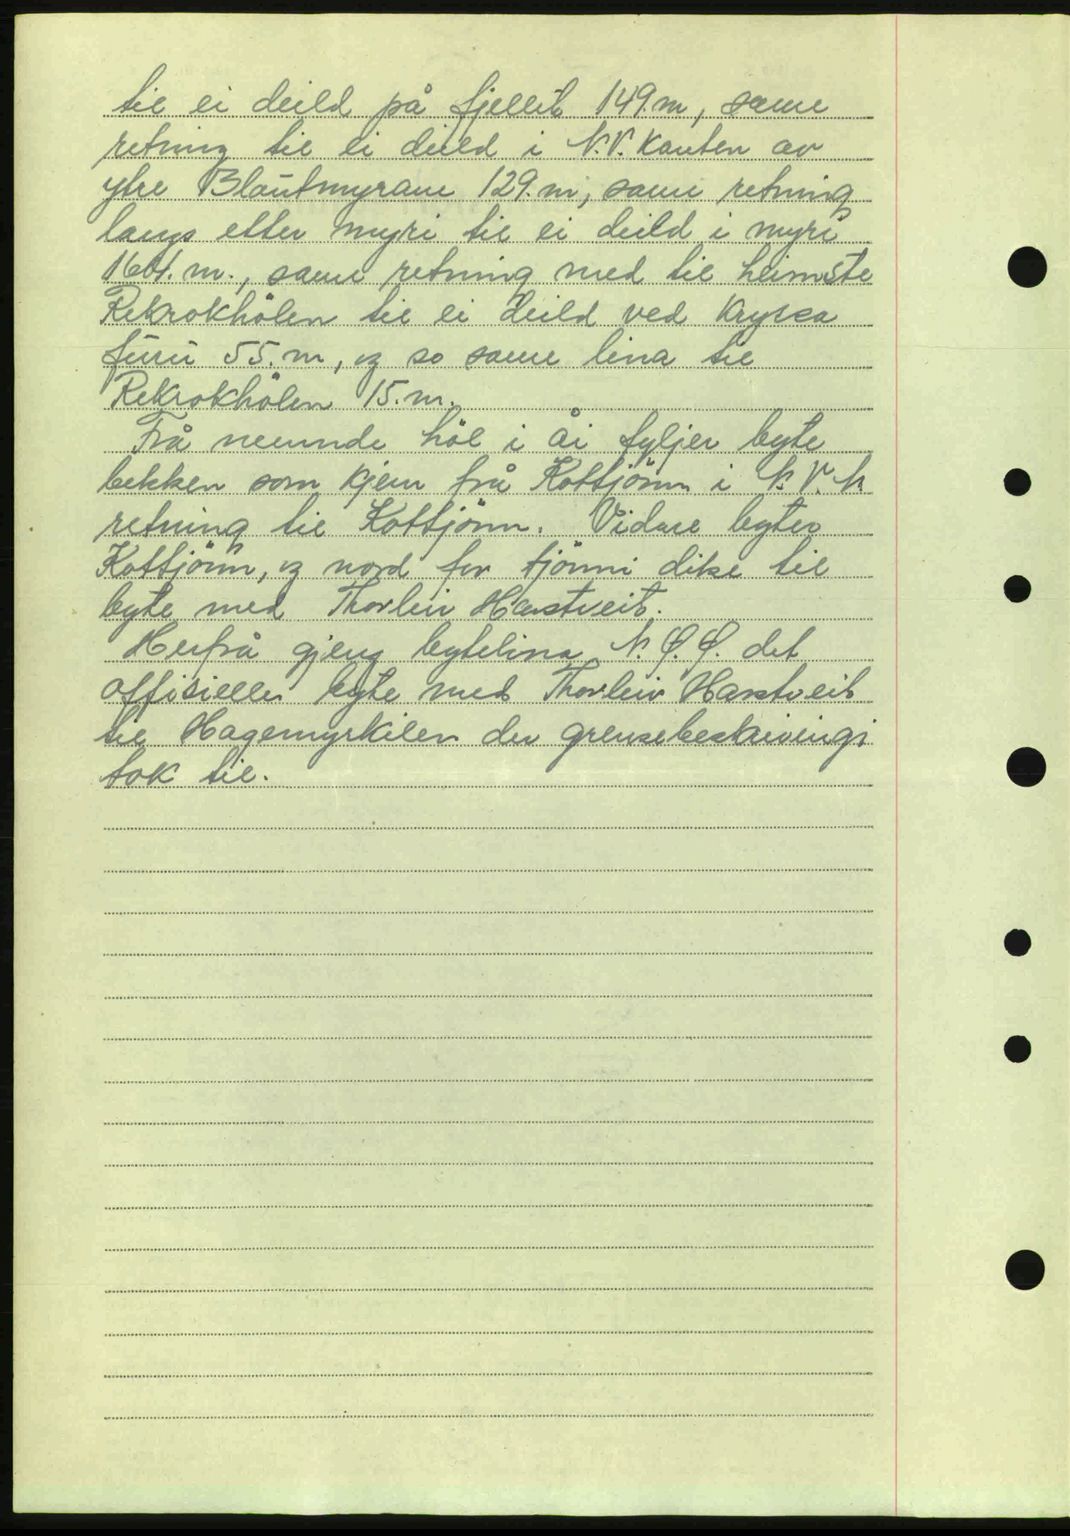 til ei deild på fjellet 149.m, same
retning til ei deild i N.V. kanten av
ytre Blautmyrane 129.m, same retning
langs etter myri til ei deild i myri
m., same retning med til heimste
Rekrokhölen til ei deild ved Krylsa
furu 55.m, og so same lina til
Rekrokhölen 15.m.
Frå nemnde höl i åi fyljer byte
bekken som kjem frå Kottjönn i N.V.N
retning til Kottjönn. Vidare byter
Kottjönn, og nord for tjönni dike til
byte med Thorleiv Harstveit.
Herfrå gjeng bytelina N.Ø.Ø. det
offisielle byte med Thorleiv Harstveit
til Hagemyrkilen der grensebeskrivingi
tok til.